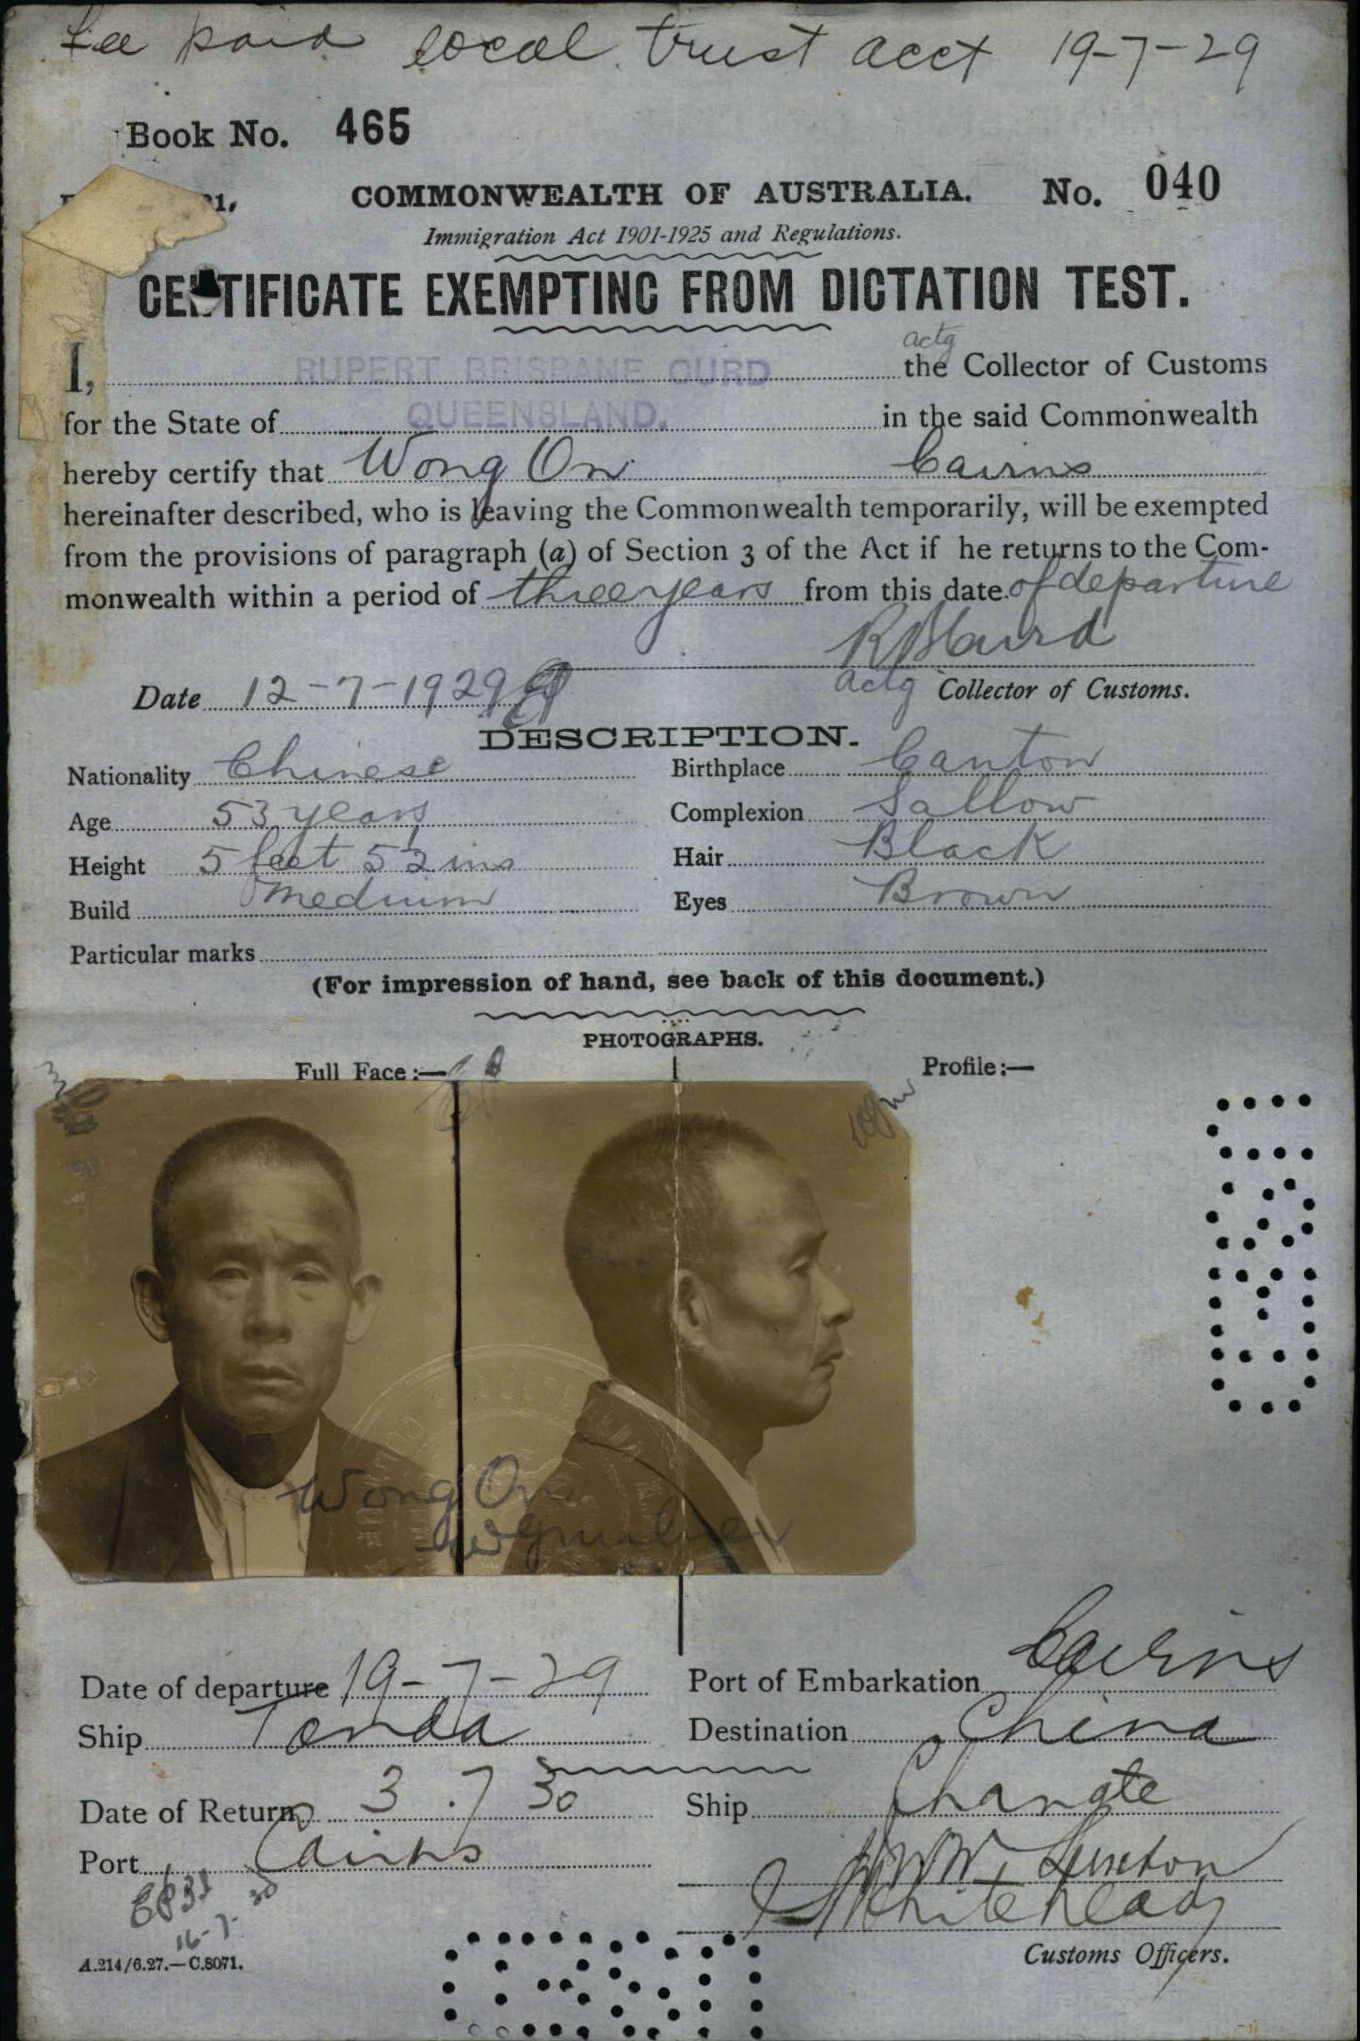 Fee paid local trust acct 19-7-29
Book No. 465
COMMONWEALTH OF AUSTRALIA. No. 040
Immigration Act 1901-1925 and Regulations.
CERTIFICATE EXEMPTING FROM DICTATION TEST.
actg
I, RUPERT BRISBANE CURD the Collector of Customs
for the State of QUEENSLAND. in the said Commonwealth
hereby certify that Wong On Cairns
hereinafter described, who is leaving the Commonwealth temporarily, will be exempted
from the provisions of paragraph (a) of Section 3 of the Act if he returns to the Com-
monwealth within a period of three years from this date of departure
RBCurd
Date 12-7-1929 actg Collector of Customs.
DESCRIPTION.
Nationality Chinese Birthplace Canton
Age 53 years Complexion Sallow
Height 5 feet 5½ ins Hair Black
Build Medium Eyes Brown
Particular marks
(For impression of hand, see back of this document.)
PHOTOGRAPHS.
Full Face:— Profile:—
Wong On
Date of departure 19-7-29 Port of Embarkation Cairns
Ship Tanda Destination China
Date of Return 3.7 30 Ship Changte
Port Cairns
Whitehead
16-7-30
A.214/6.27.—C.8071. Customs Officers.